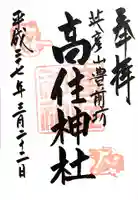 奉拝
英彦山豊前坊
高住神社
平成二七年三月二十二日